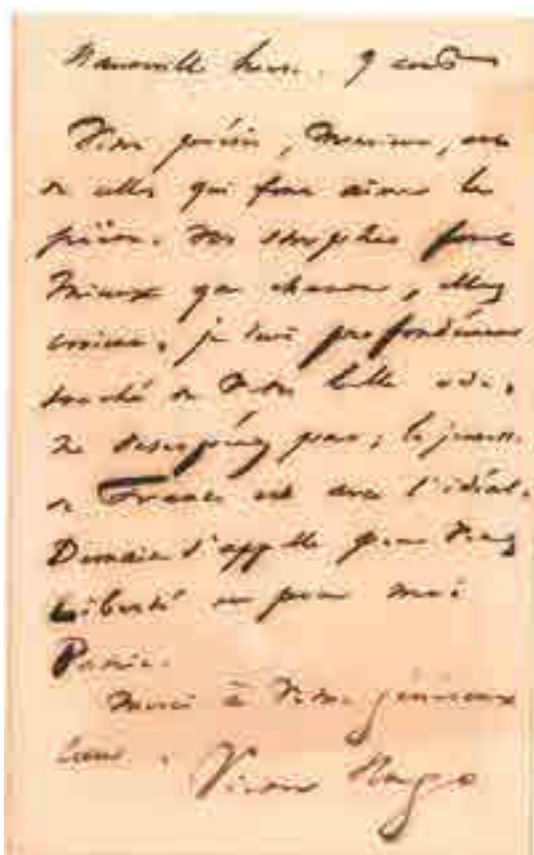 Hauteville house. 9 août
Votre poésie, Monsieur, est
de celles qui font aimer le
Vos strophes font
mieux que elles
je suis profondément
touché de votre belle ode.
Ne désespérez pas; la jeunesse
de France est avec l'idéal.
Demain s'appelle pour vous
Liberté et pour moi
Patrie.
Merci à votre généreux
cœur. Victor Hugo